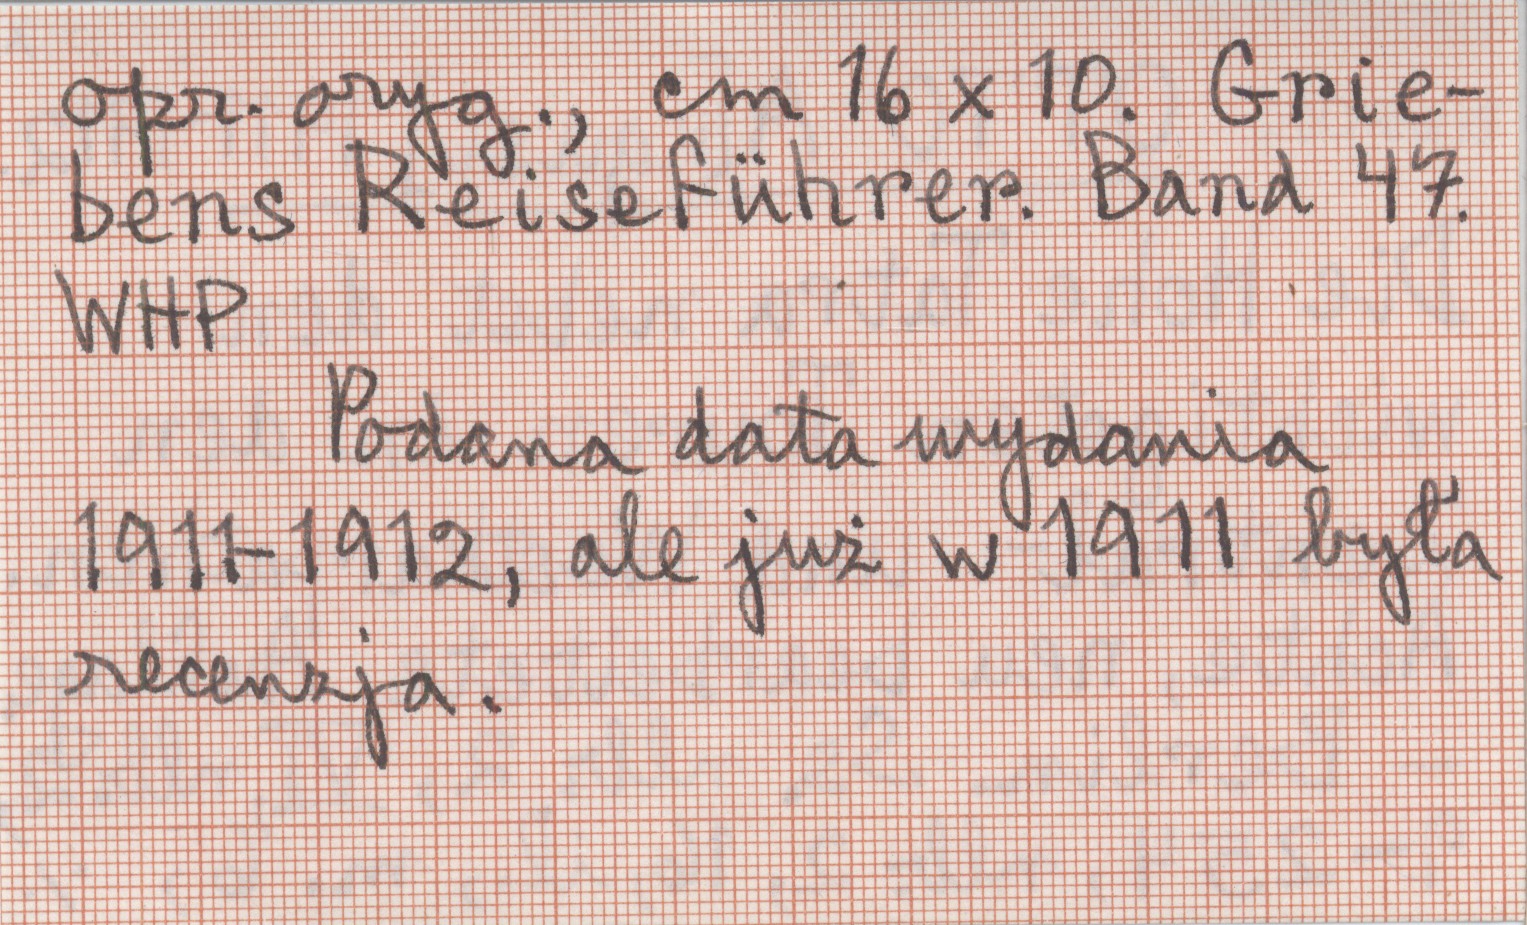 opr. oryg., cm 16 x 10. Grie-
bens Reiseführer. Band 47.
WHP
Podana data wydania
1911-1912, ale już w 1911 była
recenzja.